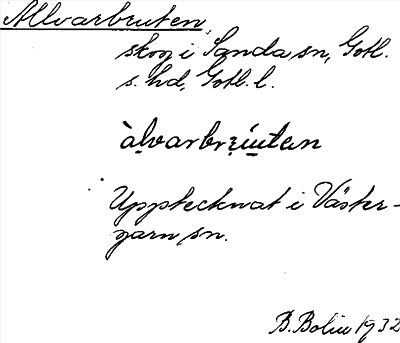 Allvarbruten,
skog i Sanda sn, Gotl.
s. hd, Gotl. l.
àlvarbrɛíutən
Upptecknat i Väster-
garn sn.
B. Bolin 1932